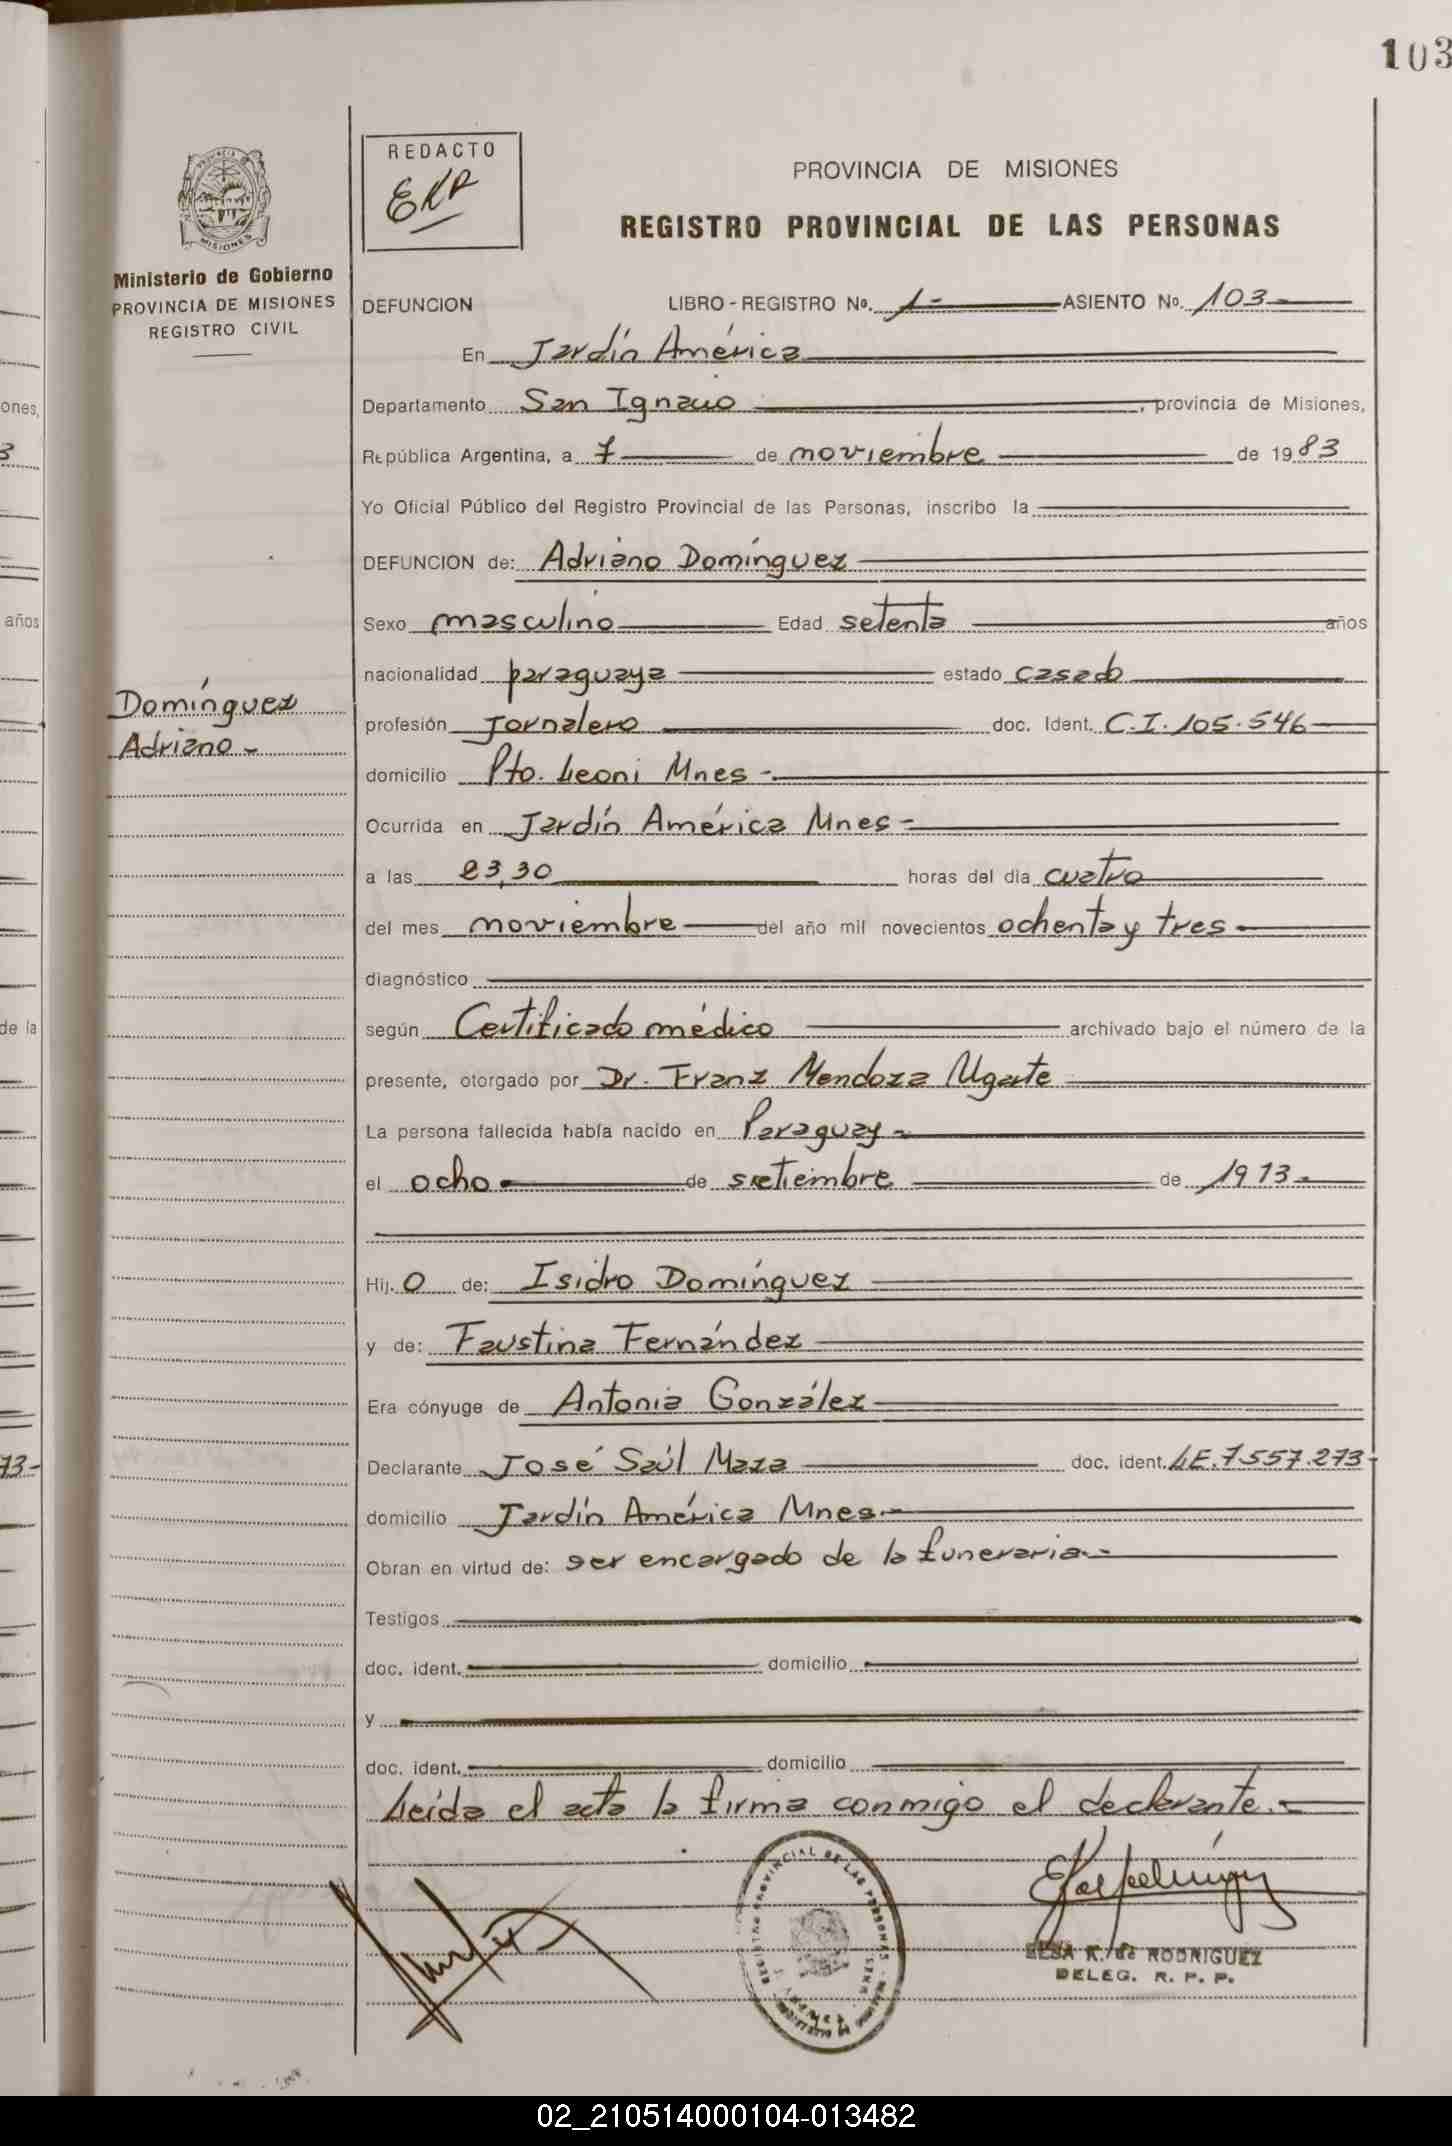 103
REDACTO
EKR
PROVINCIA DE MISIONES
REGISTRO PROVINCIAL DE LAS PERSONAS
PROVINCIA DE
MISIONES
Ministerio de Gobierno
PROVINCIA DE MISIONES
REGISTRO CIVIL
DEFUNCION LIBRO-REGISTRO Nº. 1- ASIENTO Nº. 103-
En Jardín América
Departamento San Ignacio, provincia de Misiones,
República Argentina, a 7 de noviembre de 1983
Yo Oficial Público del Registro Provincial de las Personas, inscribo la
DEFUNCION de: Adriano Domínguez
Sexo masculino Edad setenta años
nacionalidad paraguaya estado casado
Domínguez
Adriano-
profesión Jornalero doc. Ident. C.I. 105.546
domicilio Pto. Leoni Mnes-
Ocurrida en Jardín América Mnes-
a las 23,30 horas del día cuatro
del mes noviembre del año mil novecientos ochenta y tres-
diagnóstico
según Certificado médico archivado bajo el número de la
presente, otorgado por Dr. Franz Mendoza Ugarte
La persona fallecida había nacido en Paraguay-
el ocho de setiembre de 1913-
Hij. o de: Isidro Domínguez
y de: Faustina Fernández
Era cónyuge de Antonia González
Declarante José Saúl Maza doc. ident. LE.7557.273-
domicilio Jardín América Mnes.-
Obran en virtud de: ser encargado de la funeraria.-
Testigos
doc. ident. domicilio
y
doc. ident. domicilio
Leída el acta la firma conmigo el declarante.-
REGISTRO PROVINCIAL DE LAS PERSONAS
ELSA K. de RODRIGUEZ
DELEG. R. P. P.
ones,
3
años
de la
13-
02_210514000104-013482